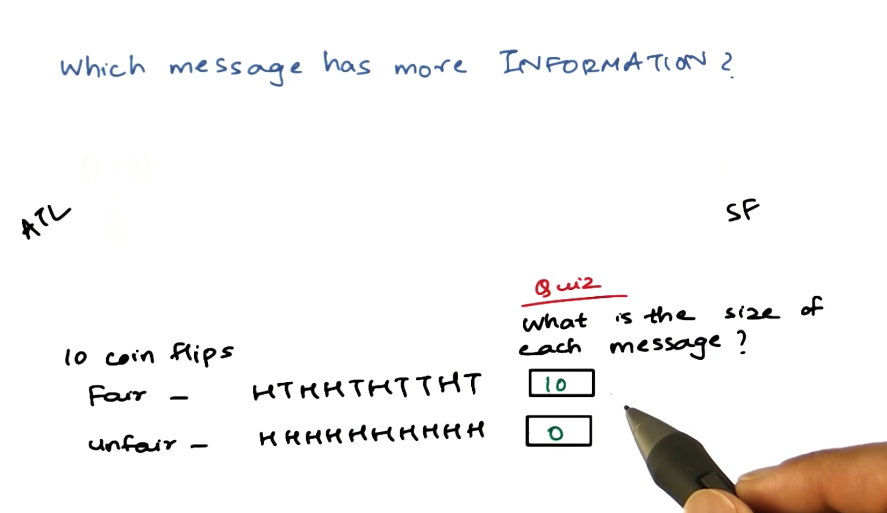 Which message has more INFORMATION?
ATL
SF
Quiz
What is the size of
each message?
10 coin flips
Fair - HTHHTHTTHT 10
unfair - HHHHHHHHHH 0